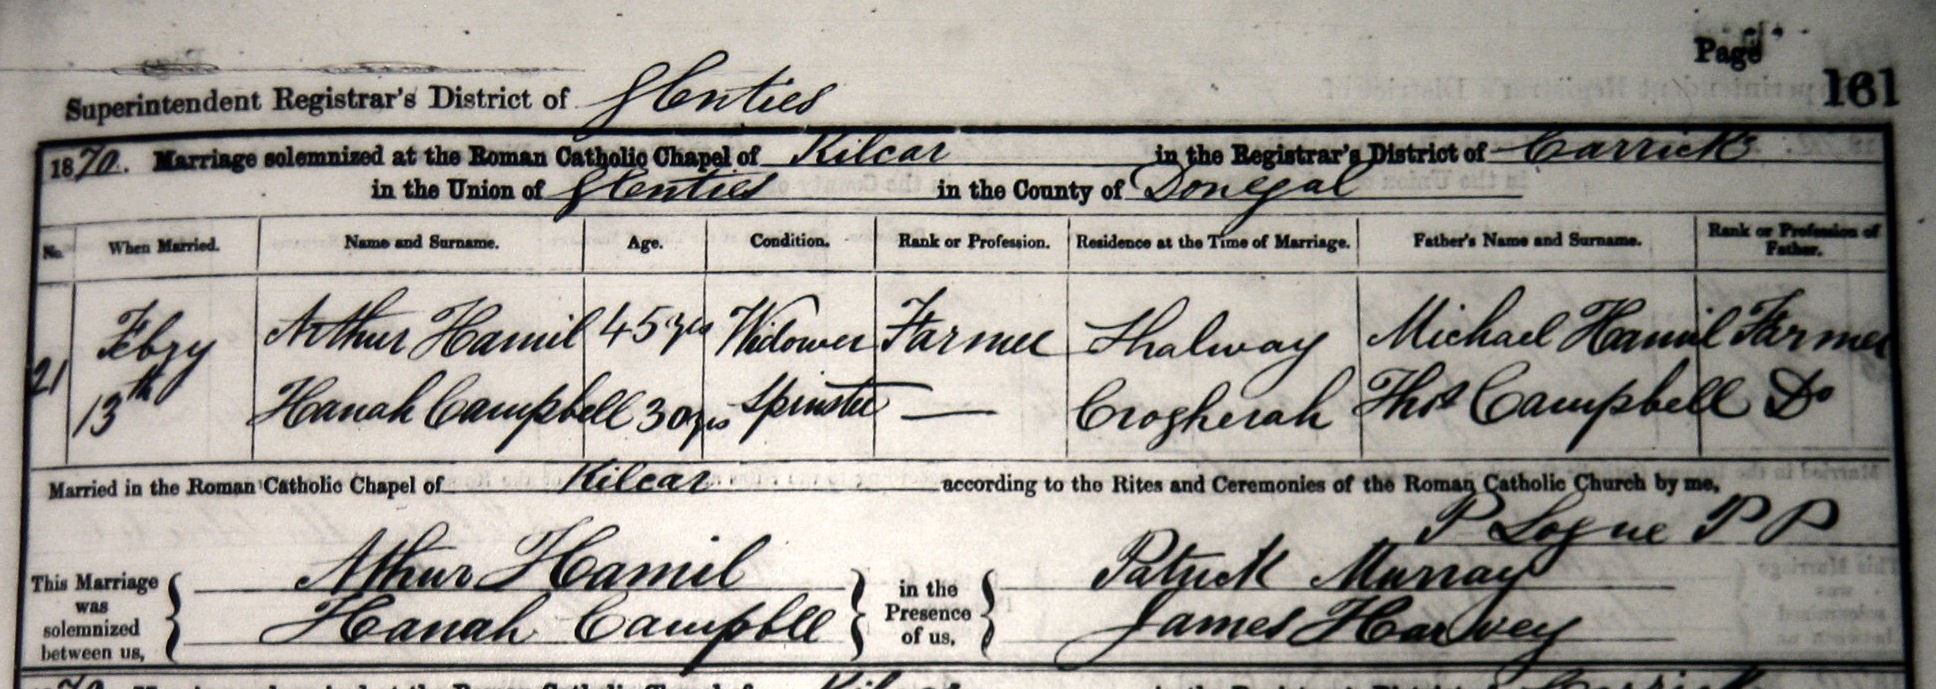 Page
161
Superintendent Registrar's District of Glenties
1870. Marriage solemnized at the Roman Catholic Chapel of Kilcar in the Registrar's District of Carrick
in the Union of Glenties in the County of Donegal
No. When Married. Name and Surname. Age. Condition. Rank or Profession. Residence at the Time of Marriage. Father's Name and Surname. Rank or Profession of Father.
21 Febry Arthur Hamil 45 yrs Widower Farmer Shalway Michael Hamil Farmer
13th Hanah Campbell 30 yrs Spinster — Crogherah Thos Campbell Do
Married in the Roman Catholic Chapel of Kilcar according to the Rites and Ceremonies of the Roman Catholic Church by me,
P Logue P P
This Marriage was solemnized between us, Arthur Hamil in the Presence of us, Patrick Murray
Hanah Campbll James Harvey